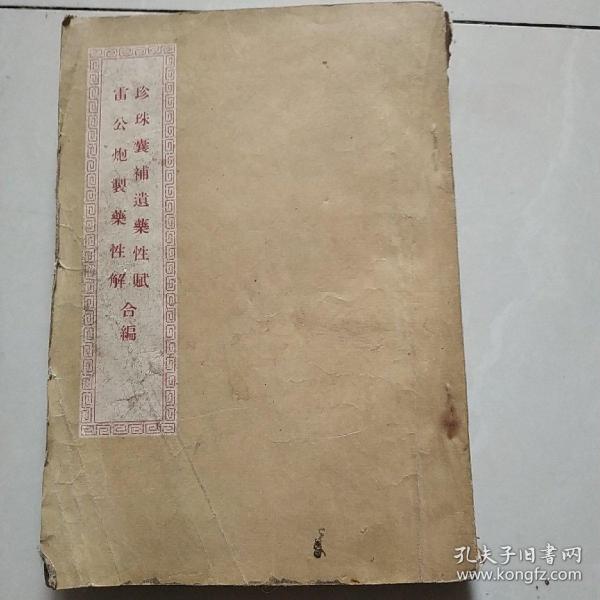 珍珠囊補遺藥性賦
雷公炮製藥性解
合編
孔夫子旧书网
www.kongfz.com